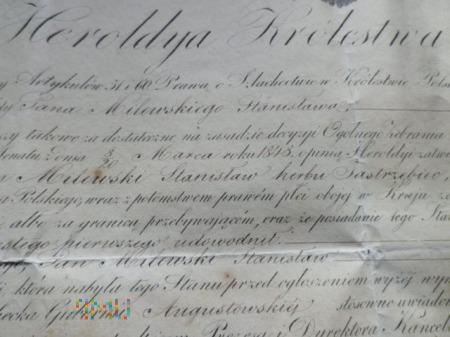 Heroldya Królestwa
y Artykułów 51 i 60 Prawa o Szlachectwie w Królestwie Pols
Jana Milewskiego Stanisława,
zy takowe za dostateczne na zasadzie decyzyi Ogólnego Zebrania
Marca roku 1843, opinią Heroldyi zatw
Milewski Stanisław herbu Jastrzębiec,
a Polskiego, wraz z potomstwem prawém płci obojéj w Kraju
albo za granicą przebywającém, oraz że posiadanie tego Sta
pierwszego udowodnił.
Jan Milewski Stanisław
która nabyła tego Stanu przed ogłoszeniem wyżéj wym
ecka Gubernij Augustowskiéj stosowne uwiadom
Prezes i Dyrektora Kancel